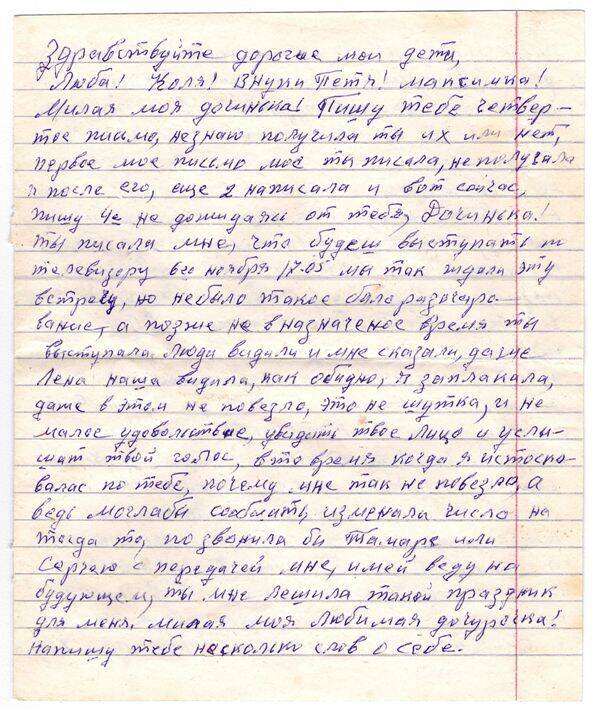 Здравствуйте дорогие мои дети,
Люба! Коля! Внуки Петя! Максимка!
Милая моя дочинька! Пишу тебе четвер-
тое писмо, незнаю получила ты их или нет,
первое мое письмо мое ты писала, не получала
я после его, еще 2 написала и вот сойчас,
пишу 4е не дожидаясь от тебя, Дочинька!
ты писала мне, что будеш выступать по
телевизору 6го ноября 17.05 мы так ждали эту
встречу, но небыло такое было разочаро-
вание, а позже не в назначеное время ты
выступала Люди видили и мне сказали, даже
Лена наша видила, как обидно, я заплакала,
даже в этом не повезло, это не шутка, и не
малое удовольствие, увидить твое лицо и услы-
шат твой голос, в это время когда я истоско-
валас по тебе, почему мне так не повезло, а
ведь моглабы сообщить, изменали число на
тогда то, позвонила би Тамаре или
Сергею с передачей мне, имей веду на
будующем, ты мне лешила такой праздник
для меня. милая моя любимая дочурочка!
Напишу тебе несколко слов о себе.